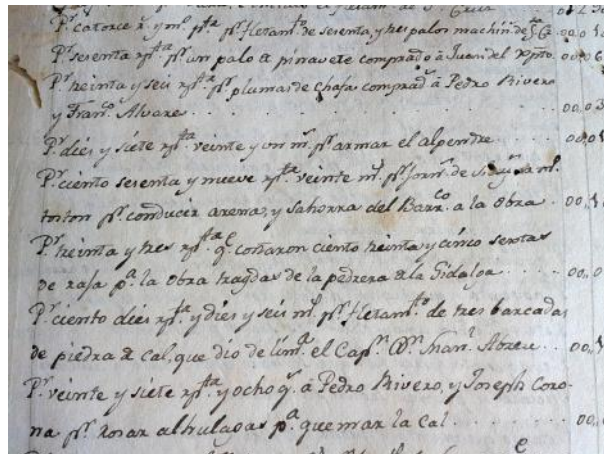 P.r catorce r.s y m.s p.ta p.r fletam.to de sesenta, y tres palos machin.s de
P.r sesenta rs p.ta p.r un palo de pinavete comprado â Juan del 00.06
P.r treinta y seis rs p.ta p.r plumas de chafa comprad.s â Pedro Rivero
y Fran.co Alvare . . . . 00.03
P.r dies y siete rs p.ta veinte y un m.s p.r armar el alpendre . . . 00.01
P.r ciento sesenta y nueve rs p.ta veinte m.s p.r Jorn.s de
p.r conducir arena, y sahorra del Barr.co a la obra . 00.1
P.r treinta y tres rs p.ta q.e costaron ciento treinta y cinco sestas
de rafa p.a la obra tragdas de la pedrera de la Gidalga . . . . 00.0
P.r ciento dies rs p.ta y dies y seis m.s p.r fletam.to de tres barcadas
de piedra de cal, que dio de lim.a el Cap.n D.n Fran.co Abreu . . 00.1
P.r veinte y siete rs p.ta y ocho q.s â Pedro Rivero, y Joseph Coro-
na p.r rosar alhulagas p.a quemar la Cal . . . . . 00.0